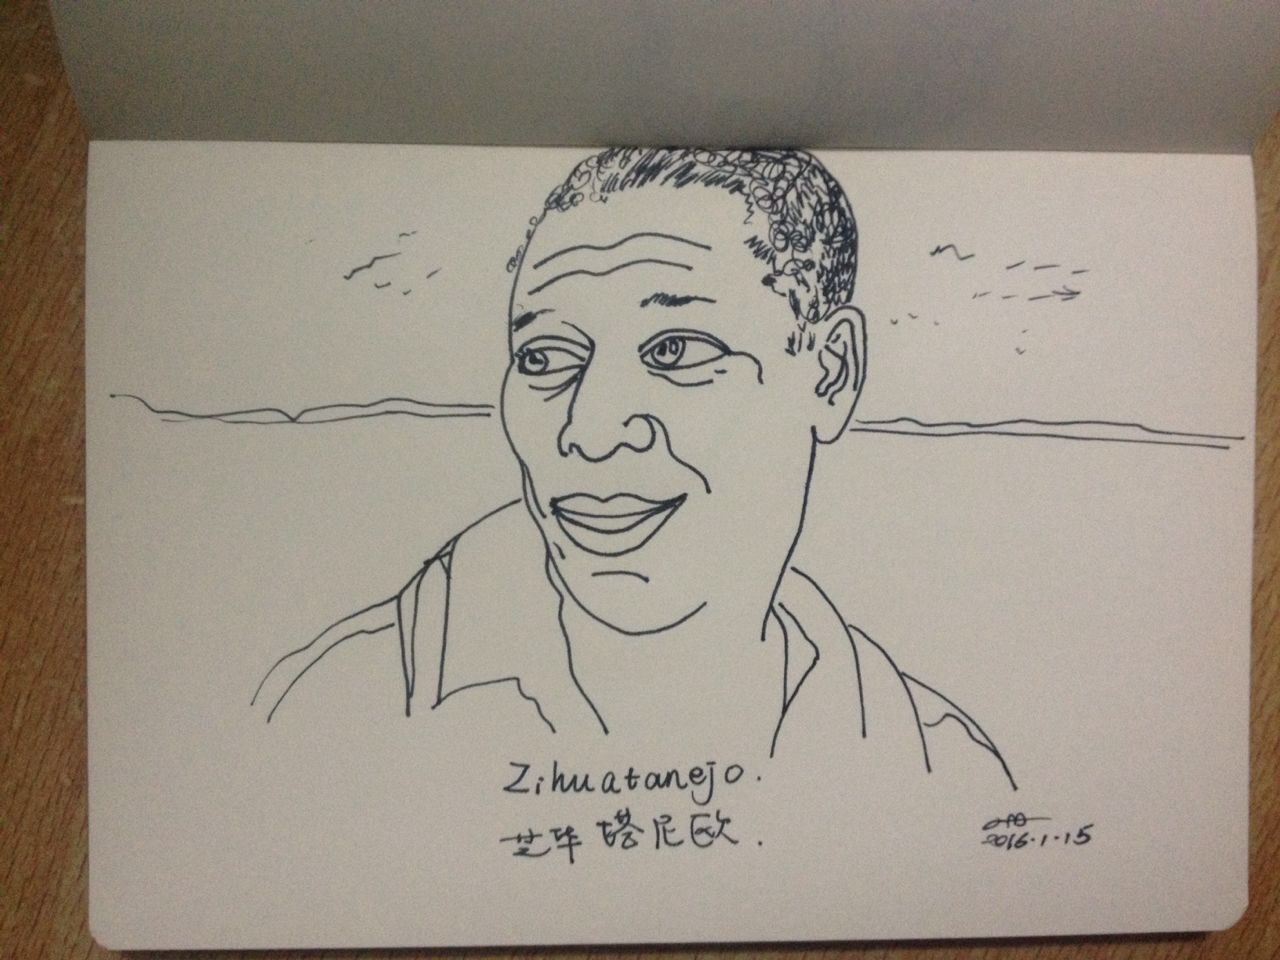 Zihuatanejo.
芝华塔尼欧.
2016.1.15